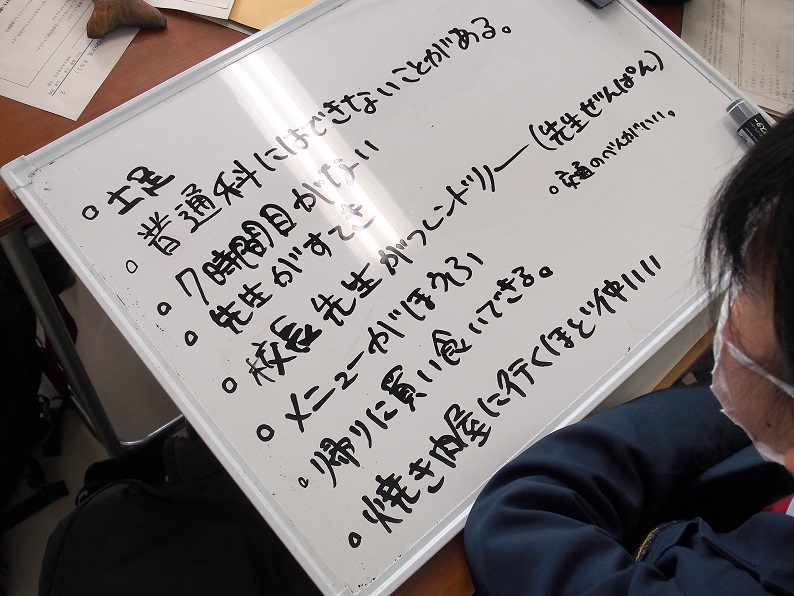 ○ 土足
○ 普通科にはできないことがある。
○ 7時間目がない
○ 先生がすてき
○ 校長先生がフレンドリー(先生ぜんぱん)
○ 交通のべんがいい。
○ メニューがほうふ
○ 帰りに買い食いできる。
○ 焼き肉屋に行くほど仲いい